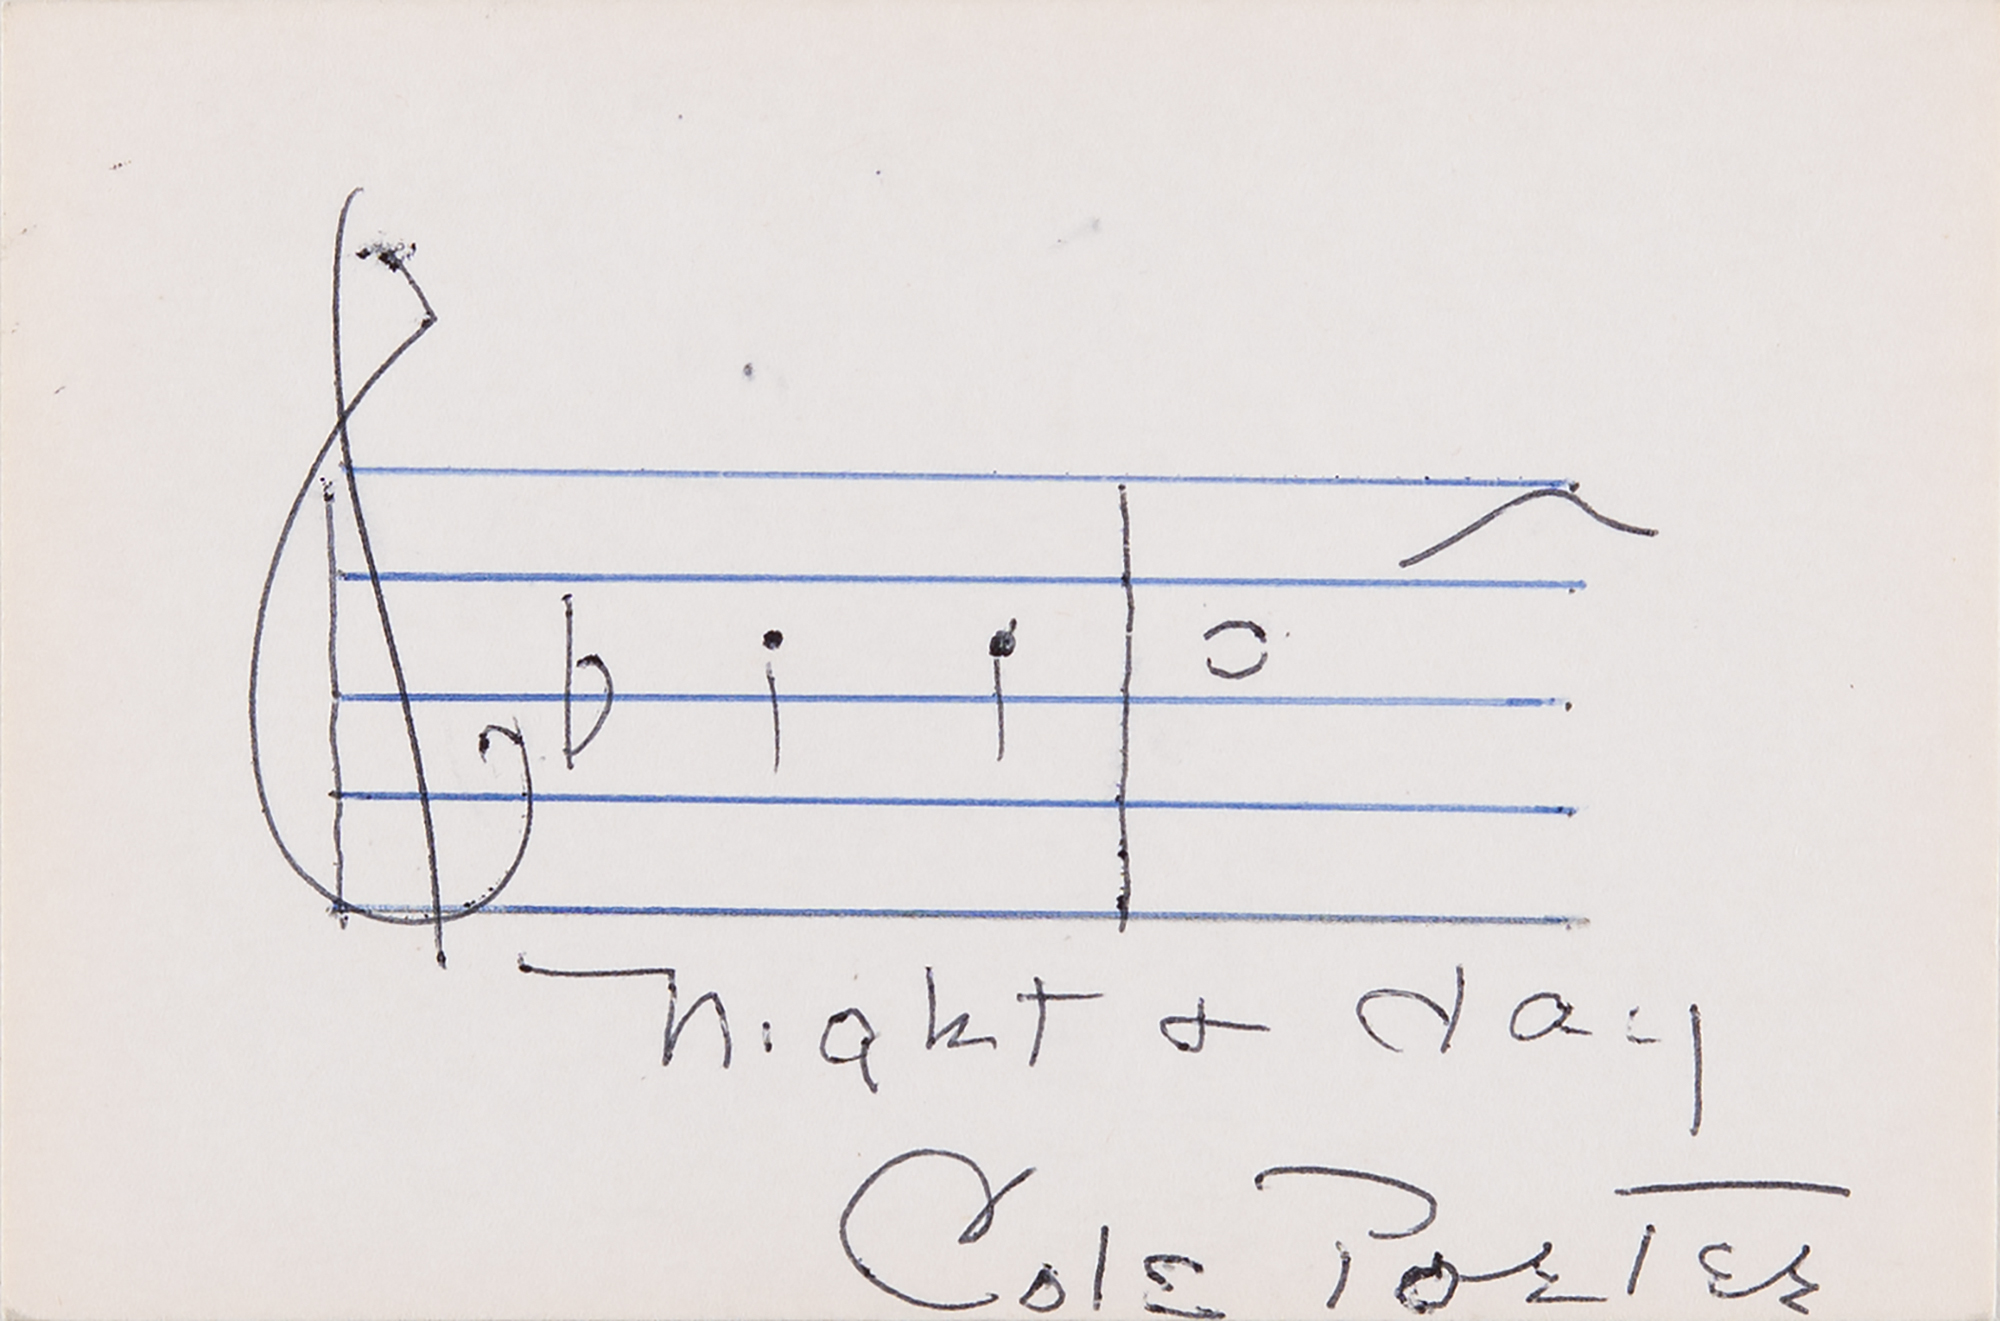 Night & day
Cole Porter